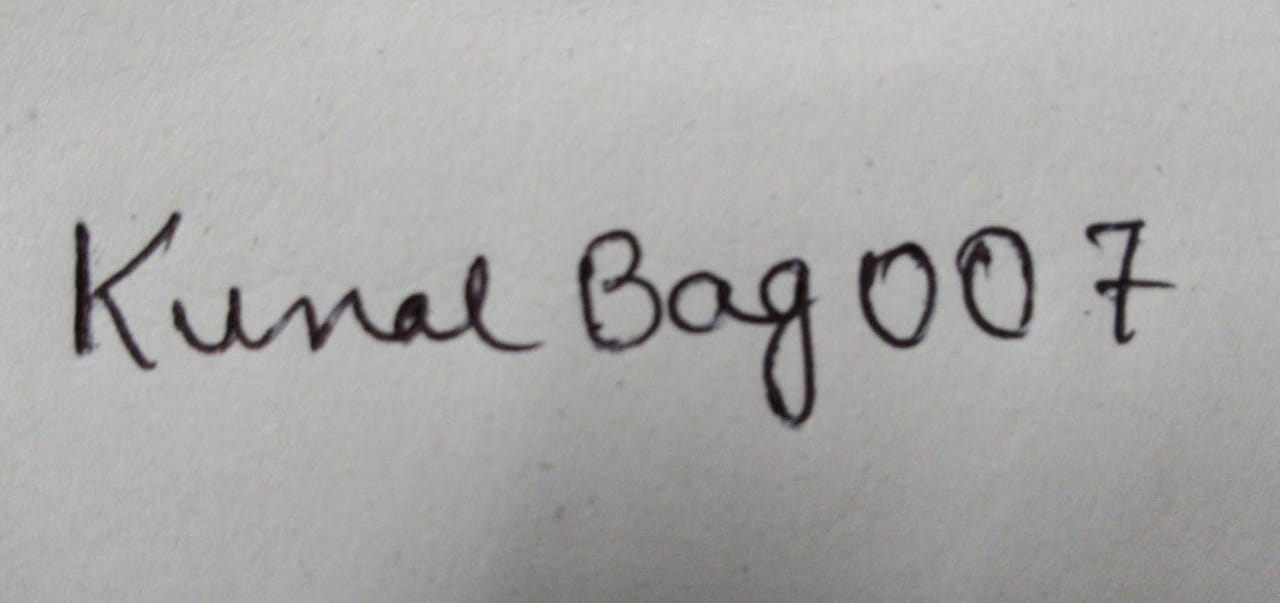 Kunal Bag 007